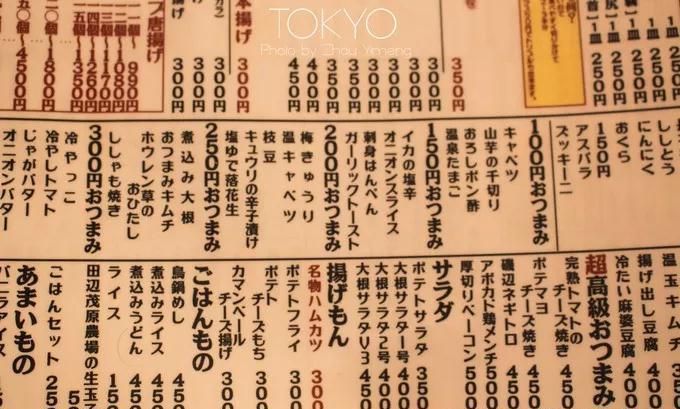 TOKYO
Photo by Zhou Yimeng
350円
300円
400円
450円
本揚げ
300円
300円
300円
300円
プ唐揚げ
一一個〜990円
一二個〜1080円
一三個〜1170円
一四個〜1260円
一五個〜1350円
二〇個〜1800円
五〇個〜4500円
ししとう
にんにく
おくら
150円
アスパラ
ズッキーニ
100円おつまみ
キャベツ
山芋の千切り
おろしポン酢
温泉たまご
150円おつまみ
イカの塩辛
オニオンスライス
刺身はんぺん
ガーリックトースト
200円おつまみ
梅きゅうり
温キャベツ
枝豆
キュウリの辛子漬け
塩ゆで落花生
250円おつまみ
煮込み大根
おつまみキムチ
ホウレン草の
おひたし
ししゃも焼き
300円おつまみ
冷やっこ
冷やしトマト
じゃがバター
オニオンバター
温玉キムチ
揚げ出し豆腐 400
冷たい麻婆豆腐 400
超高級おつまみ
完熟トマトの
チーズ焼き 450
ポテマヨ
チーズ焼き 400
磯辺ネギトロ 450
アボカド鶏メンチ 500
厚切りベーコン 500
サラダ
ポテトサラダ 350
大根サラダ1号 400
大根サラダ2号 400
大根サラダV3 450
揚げもん
名物ハムカツ 300
ポテトフライ 300
ポテト
チーズもち 300
カマンベール
チーズ揚げ 300
ごはんもの
鳥鍋めし 450
煮込みライス 450
煮込みうどん 450
ライス 150
田辺茂原農場の生玉子 50
ごはんセット 250
あまいもの
バニラアイス